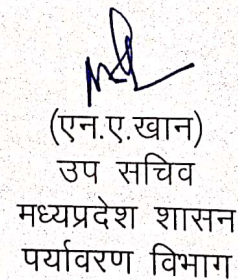 (एन.ए.खान)
उप सचिव
मध्यप्रदेश शासन
पर्यावरण विभाग